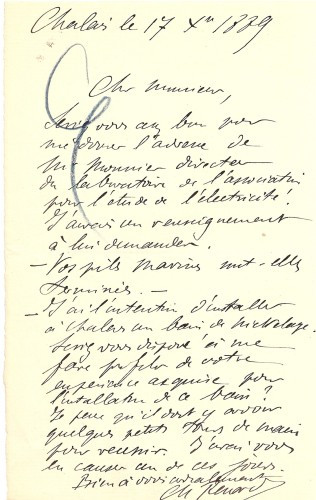 Chalais le 17 Xbre 1889
Cher monsieur,
Serez vous assez bon pour
me donner l'adresse de
Mr Monnier directeur
du laboratoire de l'association
pour l'étude de l'électricité?
J'aurais un renseignement
à lui demander.
— Vos piles marines sont-elles
terminées. —
— J'ai l'intention d'installer
à Chalais un bain de nickelage.
Serez vous disposé à me
faire profiter de votre
expérience acquise pour
l'installation de ce bain?
Je pense qu'il doit y avoir
quelques petits tours de main
pour réussir. J'irai vous
en causer un de ces jours.
Bien à vous cordialement
Ch Renard